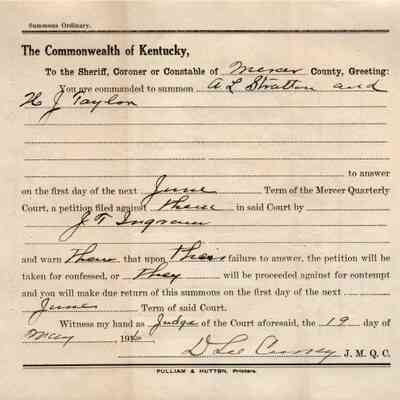 Summons Ordinary.
The Commonwealth of Kentucky,
To the Sheriff, Coroner or Constable of Mercer County, Greeting:
You are commanded to summon A L Stratton and
H J Taylor
to answer
on the first day of the next June Term of the Mercer Quarterly
Court, a petition filed against them in said Court by
J. T. Ingram
and warn them that upon their failure to answer, the petition will be
taken for confessed, or they will be proceeded against for contempt
and you will make due return of this summons on the first day of the next
June Term of said Court.
Witness my hand as Judge of the Court aforesaid, the 19 day of
May, 1916
D Lee J. M. Q. C.
PULLIAM & HUTTON, Printers.